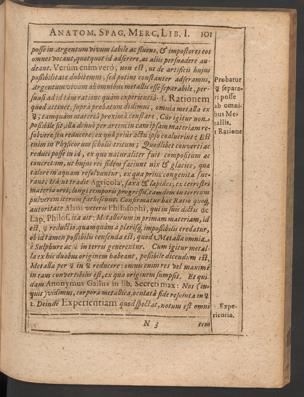 ANATOM. SPAG. MERC. LIB. I. 101
posse in argentum vivum labile ac fluens, & impostores eos
omnes vocant, quotquot id asserere, aut aliis persuadere au-
deant. Verum enim verò, non est, ut de artificii hujus
possibilitate dubitemus, sed potius constanter asseramus,
argentum vivum ab omnibus metallis esse separabile, per-
suasi ad id tum ratione quàm experientia. 1. Rationem
quod attinet, supra probatum dedimus, omnia metalla ex
☿, tamquam materia proximâ constare. Cur igitur non
possibile sit, illa denuò per artem in eam ipsam materiam re-
solvere seu reducere, ex qua prius orta ipsa coaluerint? Est
enim in Physicorum scholis tritum; Quodlibet converti ac
reduci posse in id, ex quo naturaliter fuit compositum ac
concretum, ut hujus rei fidem faciunt nix & glacies, quæ
calore in aquam resolvuntur, ex qua prius congenita fue-
rant;
pulverem iterum fatiscunt. Confirmatur hæc Ratio quoq;
autoritate
Lap. Philos. ita ait: Metallorum in primam materiam, id
est, ☿ reductio, quamquam à plerisq; impossibilis credatur,
ob id tamen possibilis censenda est, quod Metalla omnia
è Sulphure ac ☿ in terra generentur. Cum igitur metal-
la ex hic duobus originem habeant, possibile dicendum est,
Metalla per ☿ in ☿ reducere: omnis enim res vel maximè
in eam convertibilis est, ex qua originem sumpsit. Et qui-
dam Anonymus Gallus in lib. Secreti max: Nos (in-
quit) vidimus, corpora metallica,
2. Deinde Experientiam quod spectat, notum est omni
N 3
Probatur
☿ separa-
ri posse
ab omni-
bus Me-
tallis.
1 Ratione
2. Expe-
rientia.